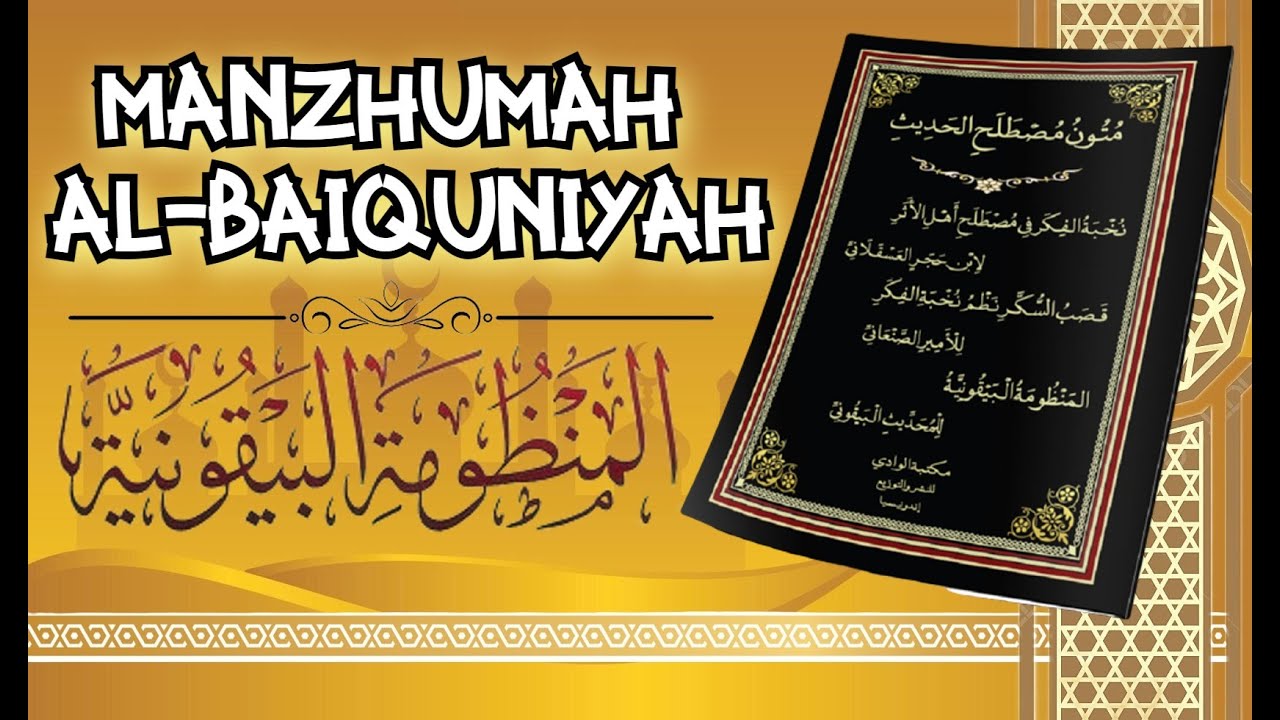 MANZHUMAH
AL-BAIQUNIYAH
المَنْظُومَةِ البَيْقُونِيَّة
مُتُونُ مُصْطَلَحِ الحَدِيثِ
نُخْبَةُ الفِكَرِ فِي مُصْطَلَحِ أَهْلِ الأَثَرِ
لِابْنِ حَجَرٍ العَسْقَلَانِيِّ
قَصَبُ السُّكَّرِ نَظْمُ نُخْبَةِ الفِكَرِ
لِلْأَمِيرِ الصَّنْعَانِيِّ
المَنْظُومَةُ الْبَيْقُونِيَّةُ
لِلْمُحَدِّثِ الْبَيْقُونِيِّ
مكتبة الوادي
للنشر والتوزيع
إندونيسيا